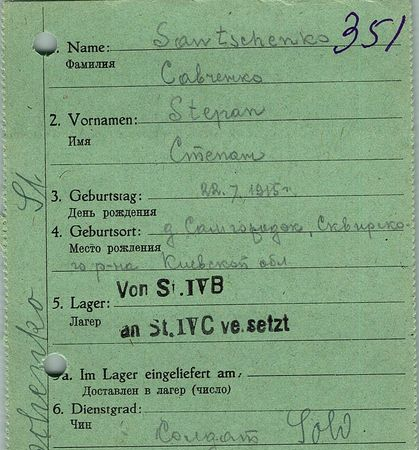 1. Name: Sawtschenko 351
Фамилия
Савченко
2. Vornamen: Stepan
Имя
Степан
3. Geburtstag: 22.7.1915 г.
День рождения
4. Geburtsort: д Самгородок, Сквирско-
Место рождения
го р-на Киевской обл
5. Lager: Von St. IVB
Лагер an St. IVC versetzt
5a. Im Lager eingeliefert am:
Доставлен в лагер (число)
6. Dienstgrad:
Чин Солдат Sold
St.